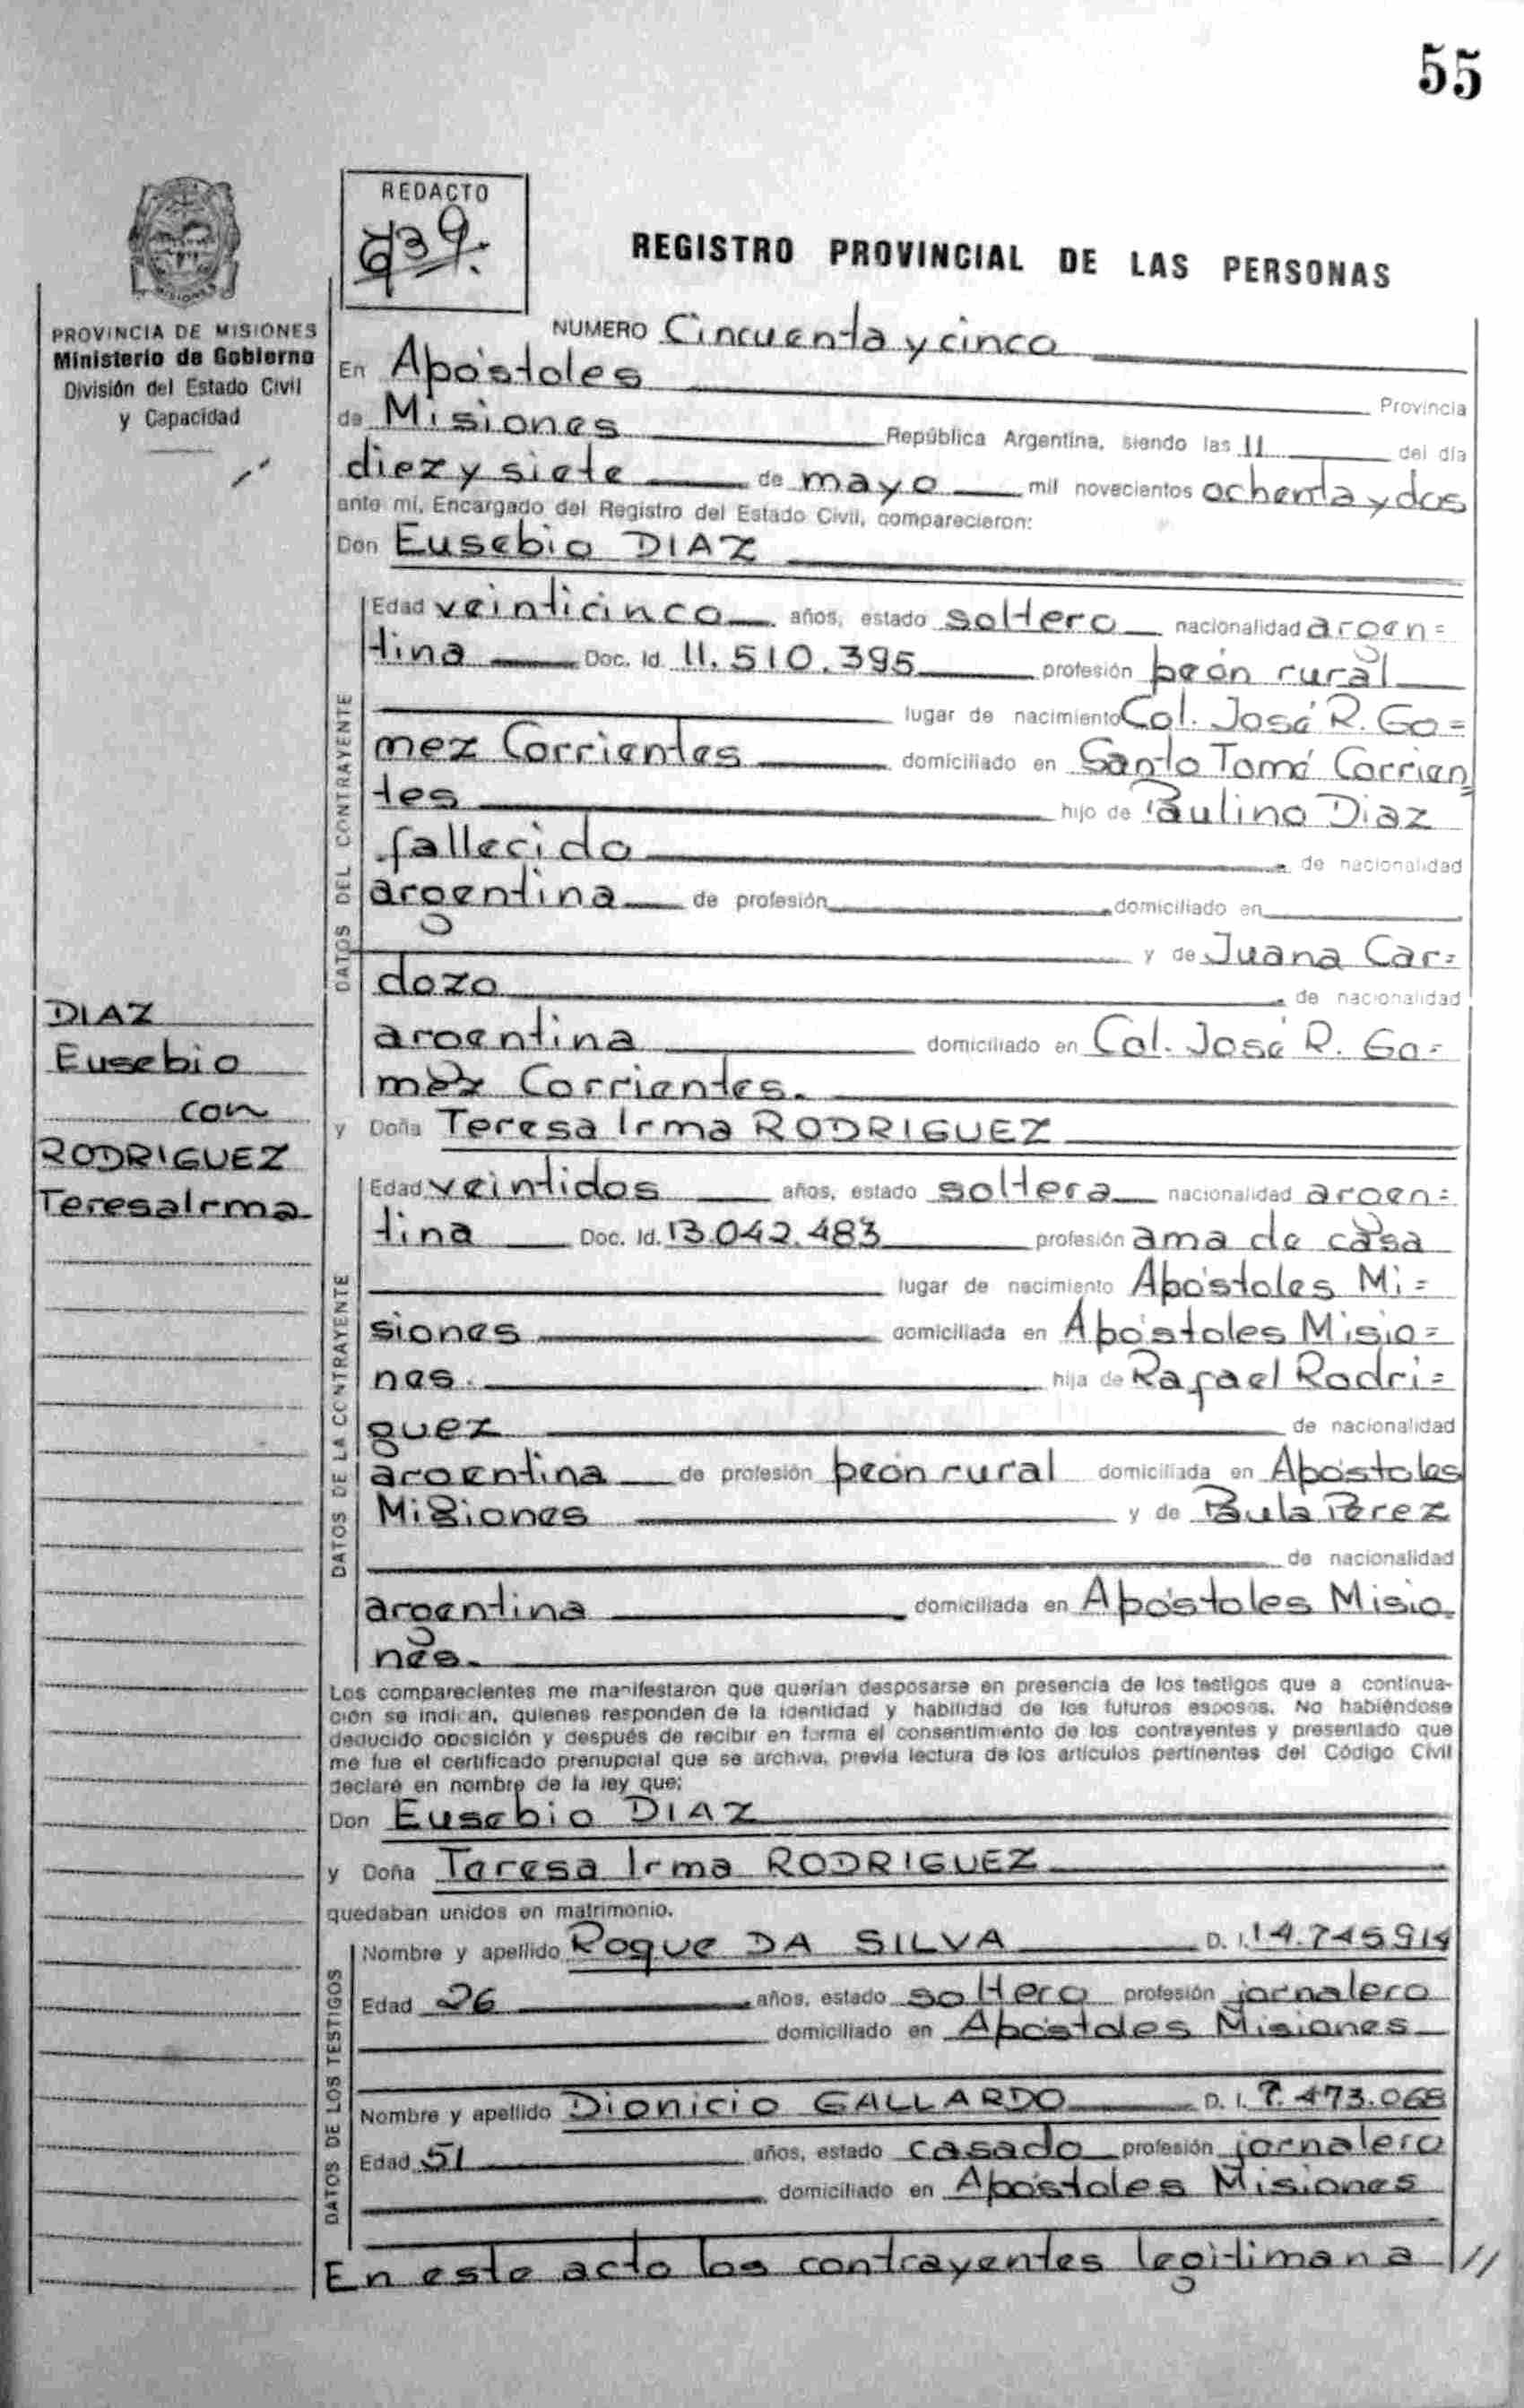 55
REDACTO
REGISTRO PROVINCIAL DE LAS PERSONAS
PROVINCIA DE MISIONES
Ministerio de Gobierno
División del Estado Civil
y Capacidad
NUMERO Cincuenta y cinco
En Apóstoles Provincia
de Misiones República Argentina, siendo las 11 del día
diez y siete de mayo mil novecientos ochenta y dos
ante mí, Encargado del Registro del Estado Civil, comparecieron:
Don Eusebio DIAZ
DATOS DEL CONTRAYENTE
Edad veinticinco años, estado soltero nacionalidad argen=
tina Doc. Id. 11.510.395 profesión peón rural
lugar de nacimiento Col. José R. Go=
mez Corrientes domiciliado en Santo Tomé Corrien=
tes hijo de Paulino Diaz
fallecido de nacionalidad
argentina de profesión domiciliado en
y de Juana Car=
dozo de nacionalidad
argentina domiciliado en Col. José R. Go=
mez Corrientes.
DIAZ
Eusebio
con
RODRIGUEZ
Teresa Irma
y Doña Teresa Irma RODRIGUEZ
DATOS DE LA CONTRAYENTE
Edad veintidos años, estado soltera nacionalidad argen=
tina Doc. Id. 13.042.483 profesión ama de casa
lugar de nacimiento Apóstoles Mi=
siones domiciliada en Apóstoles Misio=
nes. hija de Rafael Rodri=
guez de nacionalidad
argentina de profesión peón rural domiciliada en Apóstoles
Misiones y de Paula Perez
de nacionalidad
argentina domiciliada en Apóstoles Misio
nes.
Los comparecientes me manifestaron que querían desposarse en presencia de los testigos que a continua-
ción se indican, quienes responden de la identidad y habilidad de los futuros esposos. No habiéndose
deducido oposición y después de recibir en forma el consentimiento de los contrayentes y presentado que
me fue el certificado prenupcial que se archiva, previa lectura de los artículos pertinentes del Código Civil
declaré en nombre de la ley que:
Don Eusebio DIAZ
y Doña Teresa Irma RODRIGUEZ
quedaban unidos en matrimonio.
DATOS DE LOS TESTIGOS
Nombre y apellido Roque DA SILVA D. I. 14.745.914
Edad 26 años, estado soltero profesión jornalero
domiciliado en Apóstoles Misiones
Nombre y apellido Dionicio GALLARDO D. I. 7.473.068
Edad 51 años, estado casado profesión jornalero
domiciliado en Apóstoles Misiones
En este acto los contrayentes legitiman a //